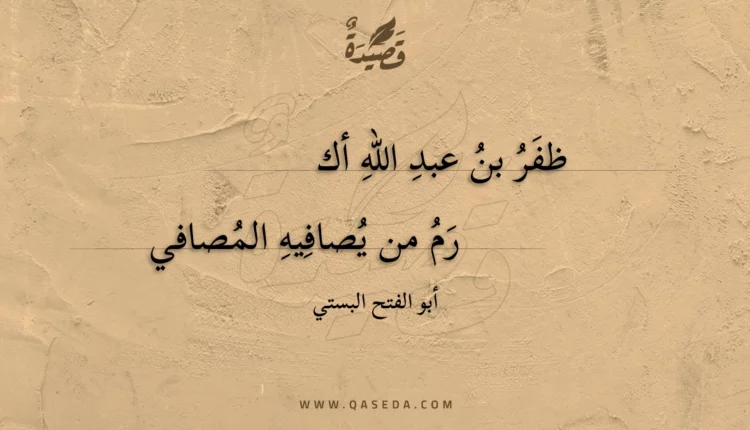 قَصِيْدَةٌ
ظفَرُ بنُ عبدِ اللهِ أك
رَمُ من يُصافِيهِ المُصافي
أبو الفتح البستي
WWW.QASEDA.COM